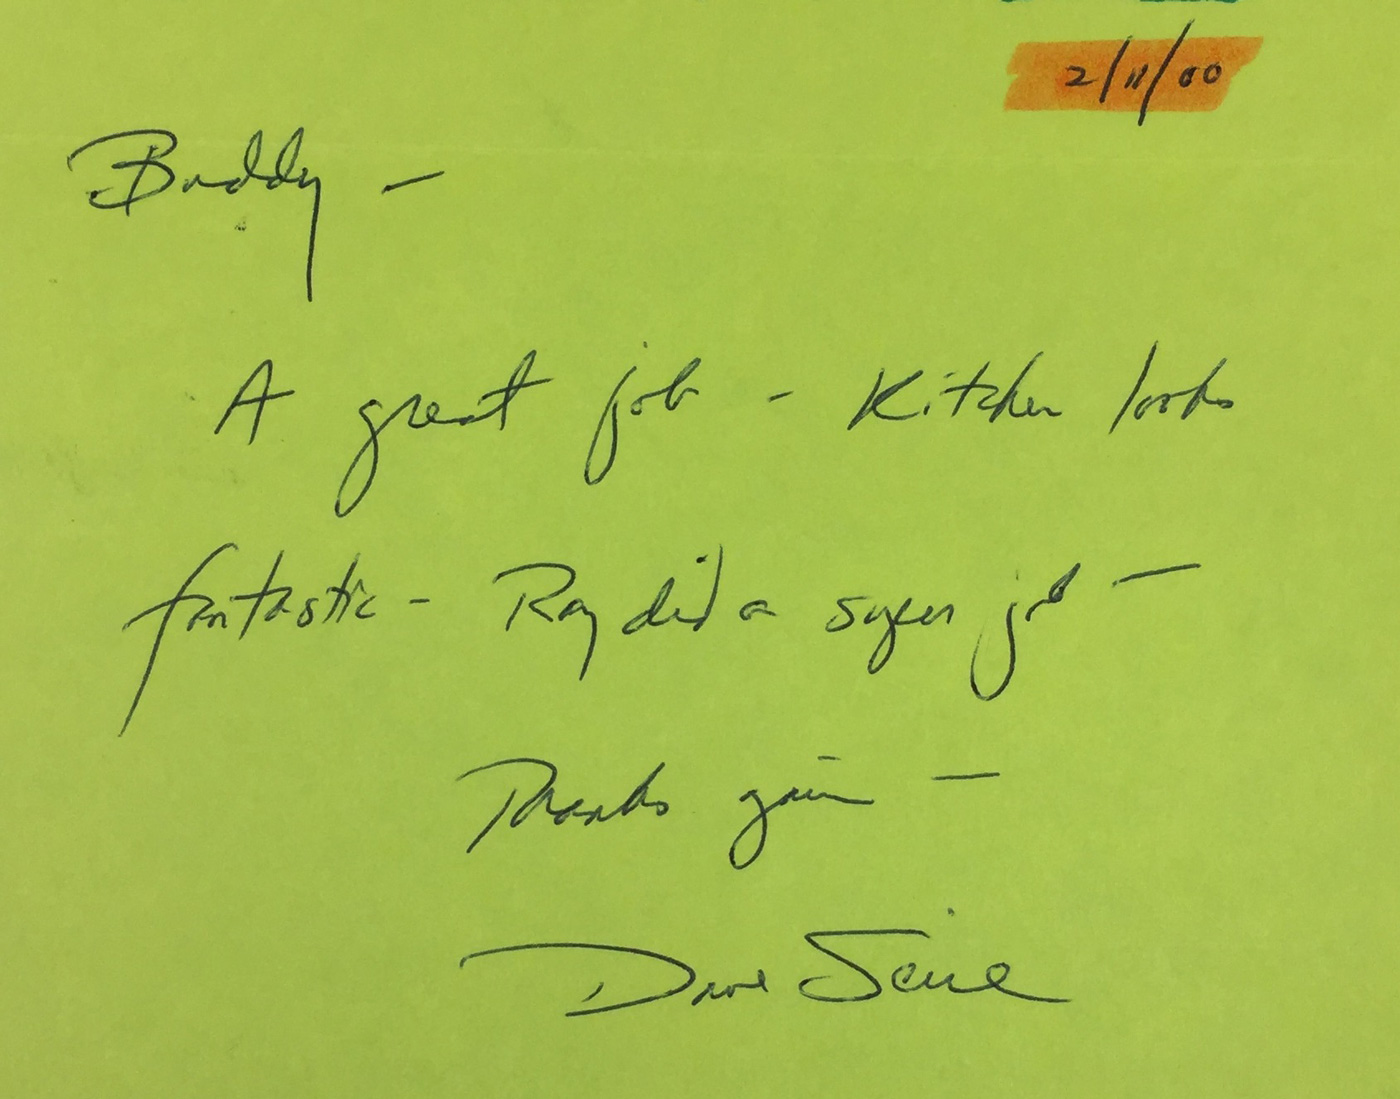 2/11/00
Buddy —
A great job - Kitchen looks
fantastic - Ray did a super job —
Thanks again —
Dave